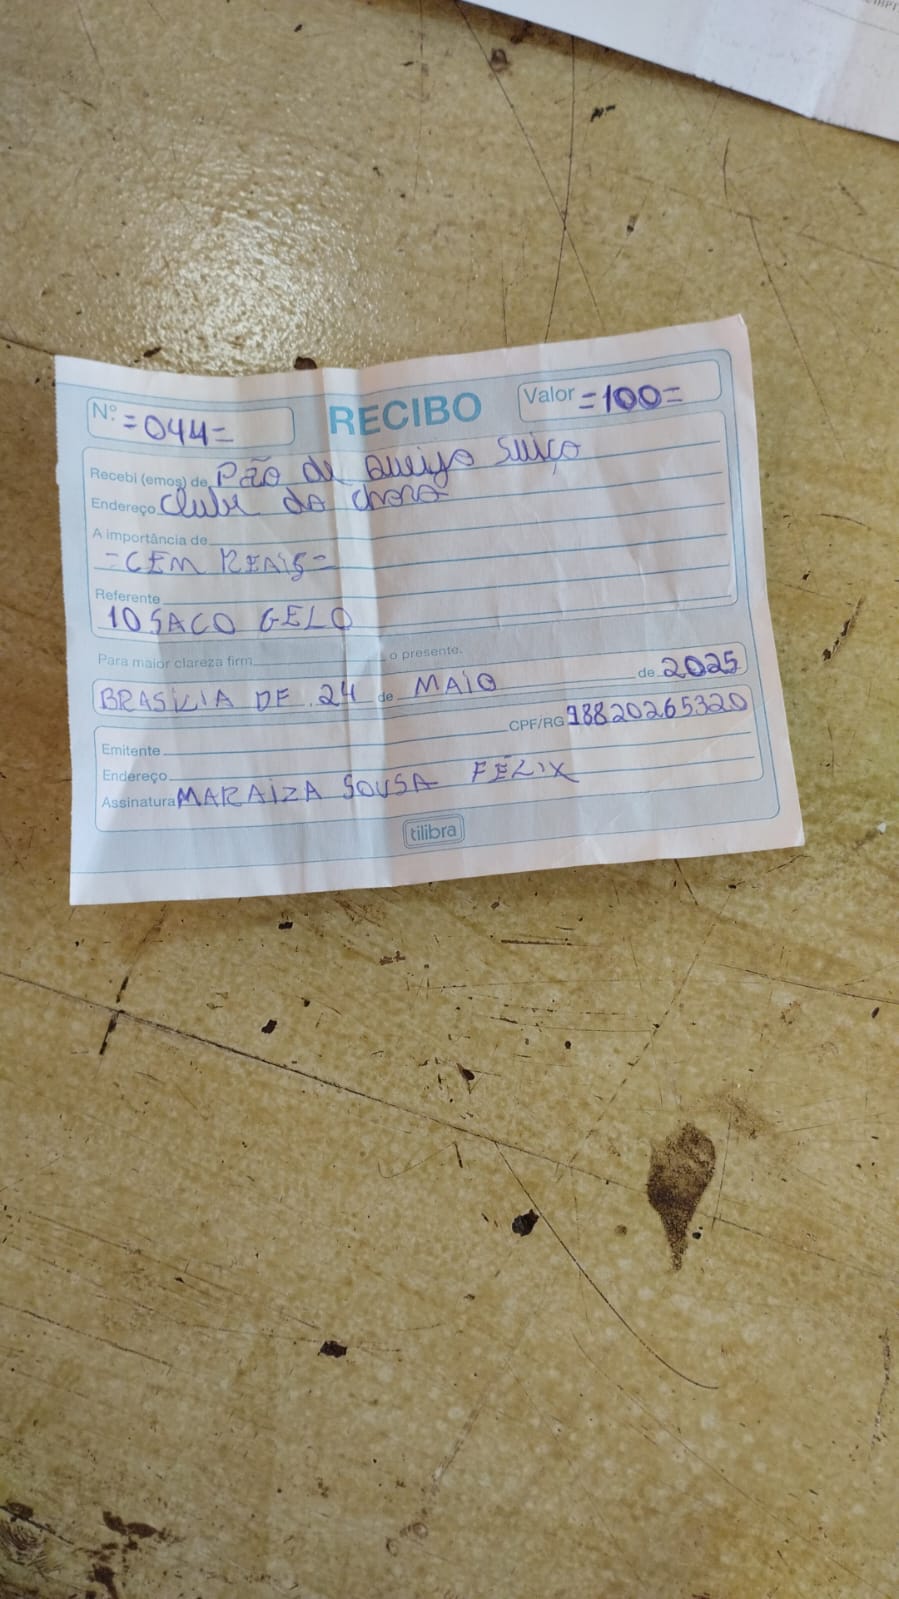 Nº =044= RECIBO Valor =100=
Recebi (emos) de Pão de queijo Suiço
Endereço Clube do choro
A importância de
=CEM REAIS=
Referente
10 SACO GELO
Para maior clareza firm o presente.
BRASILIA DE 24 de MAIO de 2025
CPF/RG 98820265320
Emitente
Endereço
Assinatura MARAIZA SOUSA FELIX
tilibra